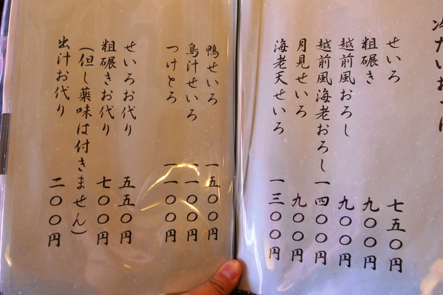 せいろ 七五〇円
粗碾き 九〇〇円
越前風おろし 九〇〇円
越前風海老おろし 一四〇〇円
月見せいろ 九〇〇円
海老天せいろ 一三〇〇円
鴨せいろ 一五〇〇円
鳥汁せいろ 一一〇〇円
つけとろ 一一〇〇円
せいろお代り 五五〇円
粗碾きお代り 七〇〇円
(但し薬味は付きません)
出汁お代り 二〇〇円